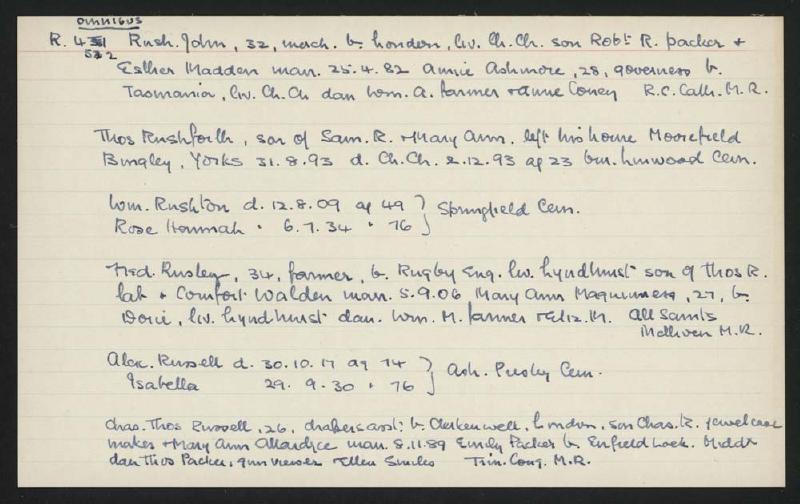 Omnibus
R. 431 Rush. John, 32, merch. b. London, liv. Ch.Ch. son Robt R. packer +
532
Esther Madden marr. 25.4.82 Annie Ashmore, 28, governess b.
Tasmania, liv. Ch.Ch dau Wm. A. farmer + Anne Coney R.C. Cath. M.R.
Thos Rushforth, son of Sam. R. + Mary Ann. left his home Moorefield
Bingley, Yorks 31.8.93 d. Ch.Ch. 2.12.93 ag 23 bur. Linwood Cem.
Wm. Rushton d. 12.8.09 ag 49 } Springfield Cem.
Rose Hannah " 6.7.34 " 76
Fred. Rusley, 34, farmer, b. Rugby Eng. liv. Lyndhurst son of Thos R.
lab + Comfort Walden marr. 5.9.06 Mary Ann, 27, b.
liv. Lyndhurst dau. Wm. M. farmer + Eliz. M. All Saints
Methven M.R.
Alex. Russell d. 30.10.17 ag 74 } Ash. Presby Cem.
Isabella 29.9.30 " 76
Chas. Thos Russell, 26, drapers asst; b. Clerkenwell, London, son Chas. R. jewel case
maker + Mary Ann Allardyce marr. 8.11.89 Emily Packer b. Enfield Lock. Middx
dau Thos Packer, gun viewer + Ellen Smiles Trin. Cong. M.R.